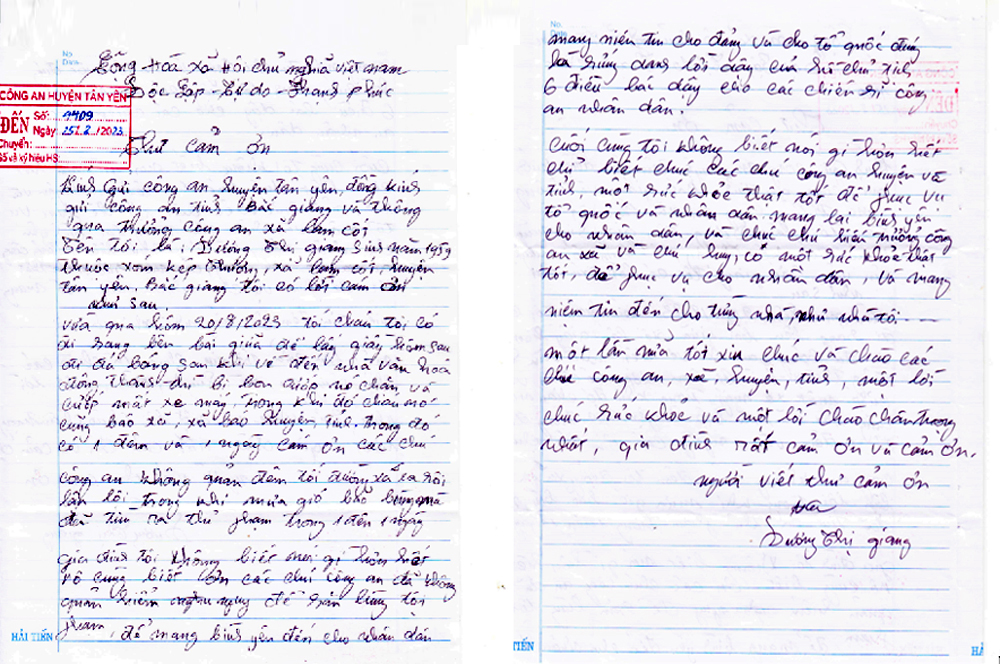 No.
Date
Cộng Hòa xã Hội chủ nghĩa việt nam
Độc lập - Tự do - Hạnh phúc
CÔNG AN HUYỆN TÂN YÊN
ĐẾN
Số: 1409
Ngày 25/.2./2023
Chuyển:
Số và ký hiệu HS:
Thư cảm ơn
Kính gửi công an huyện tân yên, đồng kính
gửi công an tỉnh Bắc giang và thông
qua trưởng công an xã lam cốt
Tên tôi là: Dương Thị giang sinh năm 1959
thuộc xóm kép thượng, xã lam cốt, huyện
tân yên, Bắc giang tôi có lời cảm ơn
như sau
vừa qua hôm 20/8/2023 tối cháu tôi có
đi sang bên bãi giữa để lấy giày hôm sau
đi đá bóng sau khi về đến nhà văn hóa
đông thành thì bị bọn cướp nó chặn và
cướp mất xe máy trong khi đó cháu nó
cung báo xã, xã báo huyện, tỉnh. trong đó
có 1 đêm và 1 ngày cảm ơn các chú
công an không quản đêm tối đường xá xa xôi
lần lôi trong khi mưa gió bão bùng mà
đã tìm ra thủ phạm trong 1 đến 1 ngày
Gia đình tôi không biết nói gì hơn hết
vô cùng biết ơn các chú công an đã không
quản hiểm nguy để săn lùng tội
phạm, để mang bình yên đến cho nhân dân
HẢI TIẾN
No.
Date
mang niềm tin cho đảng và cho tổ quốc đúng
là xứng danh lời dậy của hồ chủ tịch
6 điều bác dậy cho các chiến sĩ công
an nhân dân.
Cuối cùng tôi không biết nói gì hơn hết
chỉ biết chúc các chú công an huyện và
tỉnh, một sức khỏe thật tốt để phục vụ
tổ quốc và nhân dân mang lại bình yên
cho nhân dân, và chúc chú hiến trưởng công
an xã và chú huy, có một sức khỏe thật
tốt, để phục vụ cho nhân dân, và mang
niềm tin đến cho từng nhà, như nhà tôi
một lần nữa tôi xin chúc và chào các
chú công an, xã, huyện, tỉnh, một lời
chúc sức khỏe và một lời chào chân trọng
nhất, gia đình rất cảm ơn và cảm ơn.
người viết thư cảm ơn
Dương Thị giang
TIẾN
HẢ